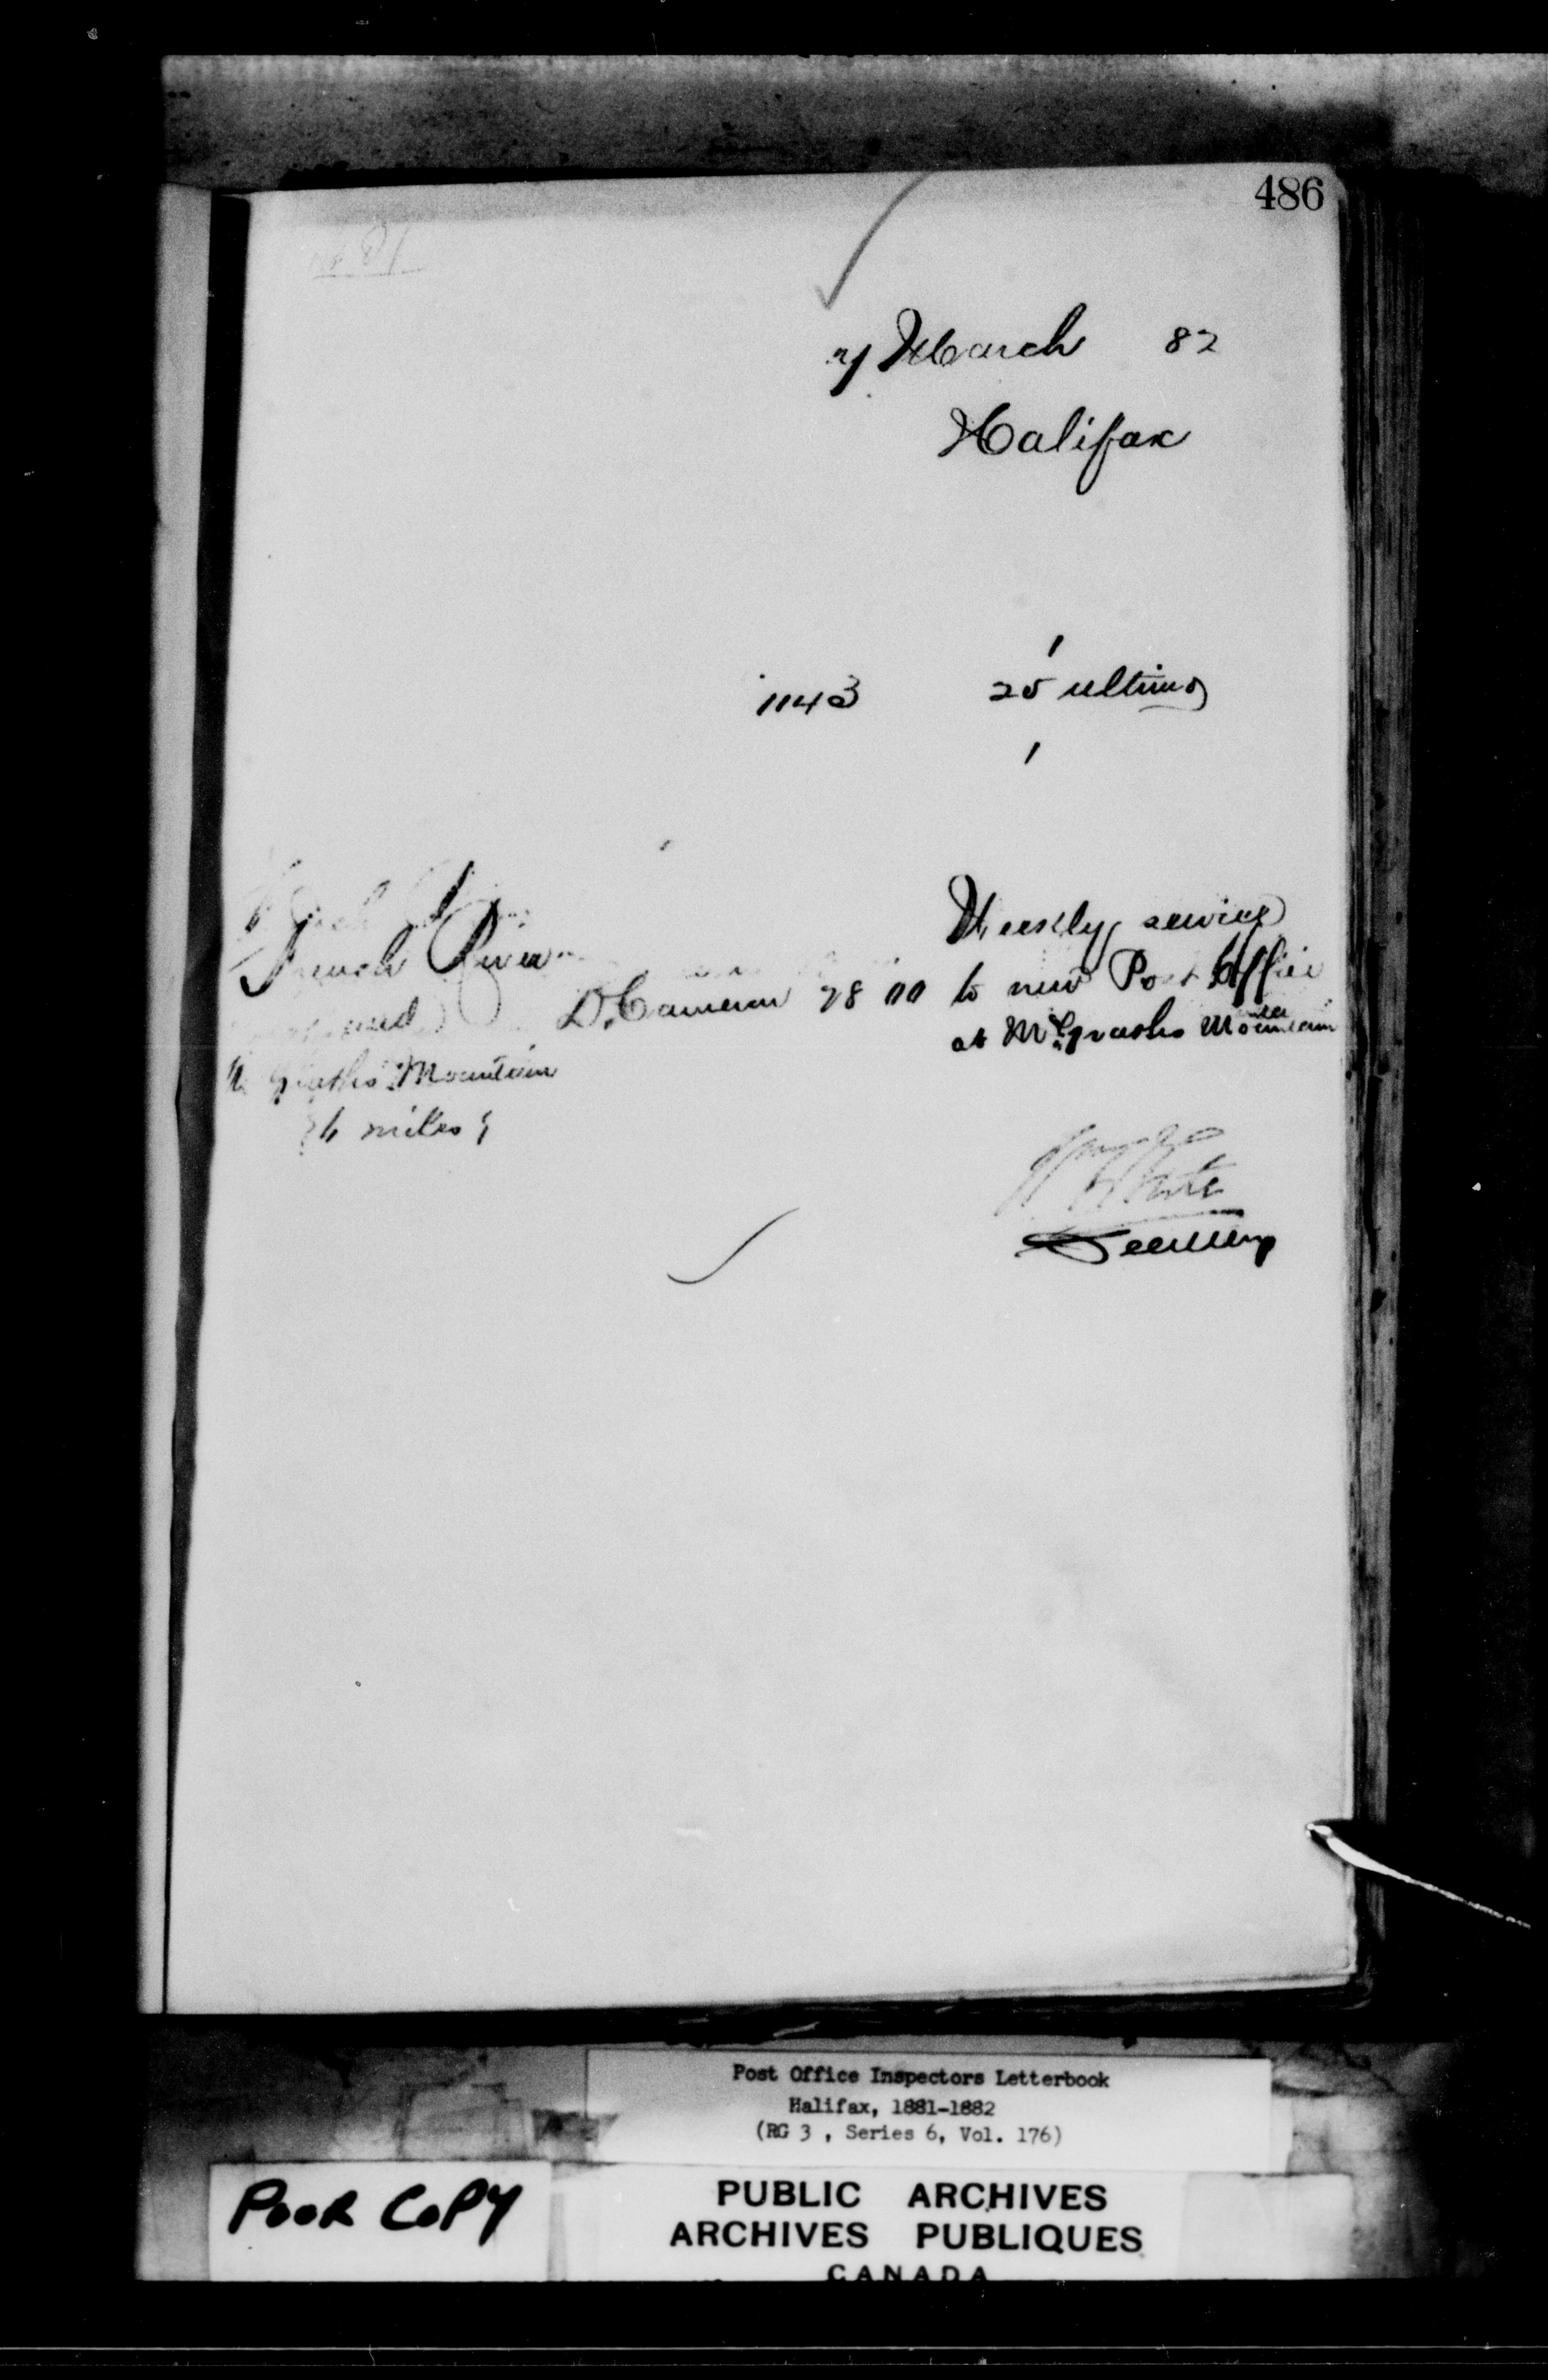 486
March 82
Halifax
1143 25 ultimo
Weekly service
French River
D. Cameron 28 00 to new Post Office
and
at McGraths Mountain
Graths Mountain
miles
White
Secretary
Post Office Inspectors Letterbook
Halifax, 1881-1882
(RG 3 , Series 6, Vol. 176)
POOR COPY
PUBLIC ARCHIVES
ARCHIVES PUBLIQUES
CANADA